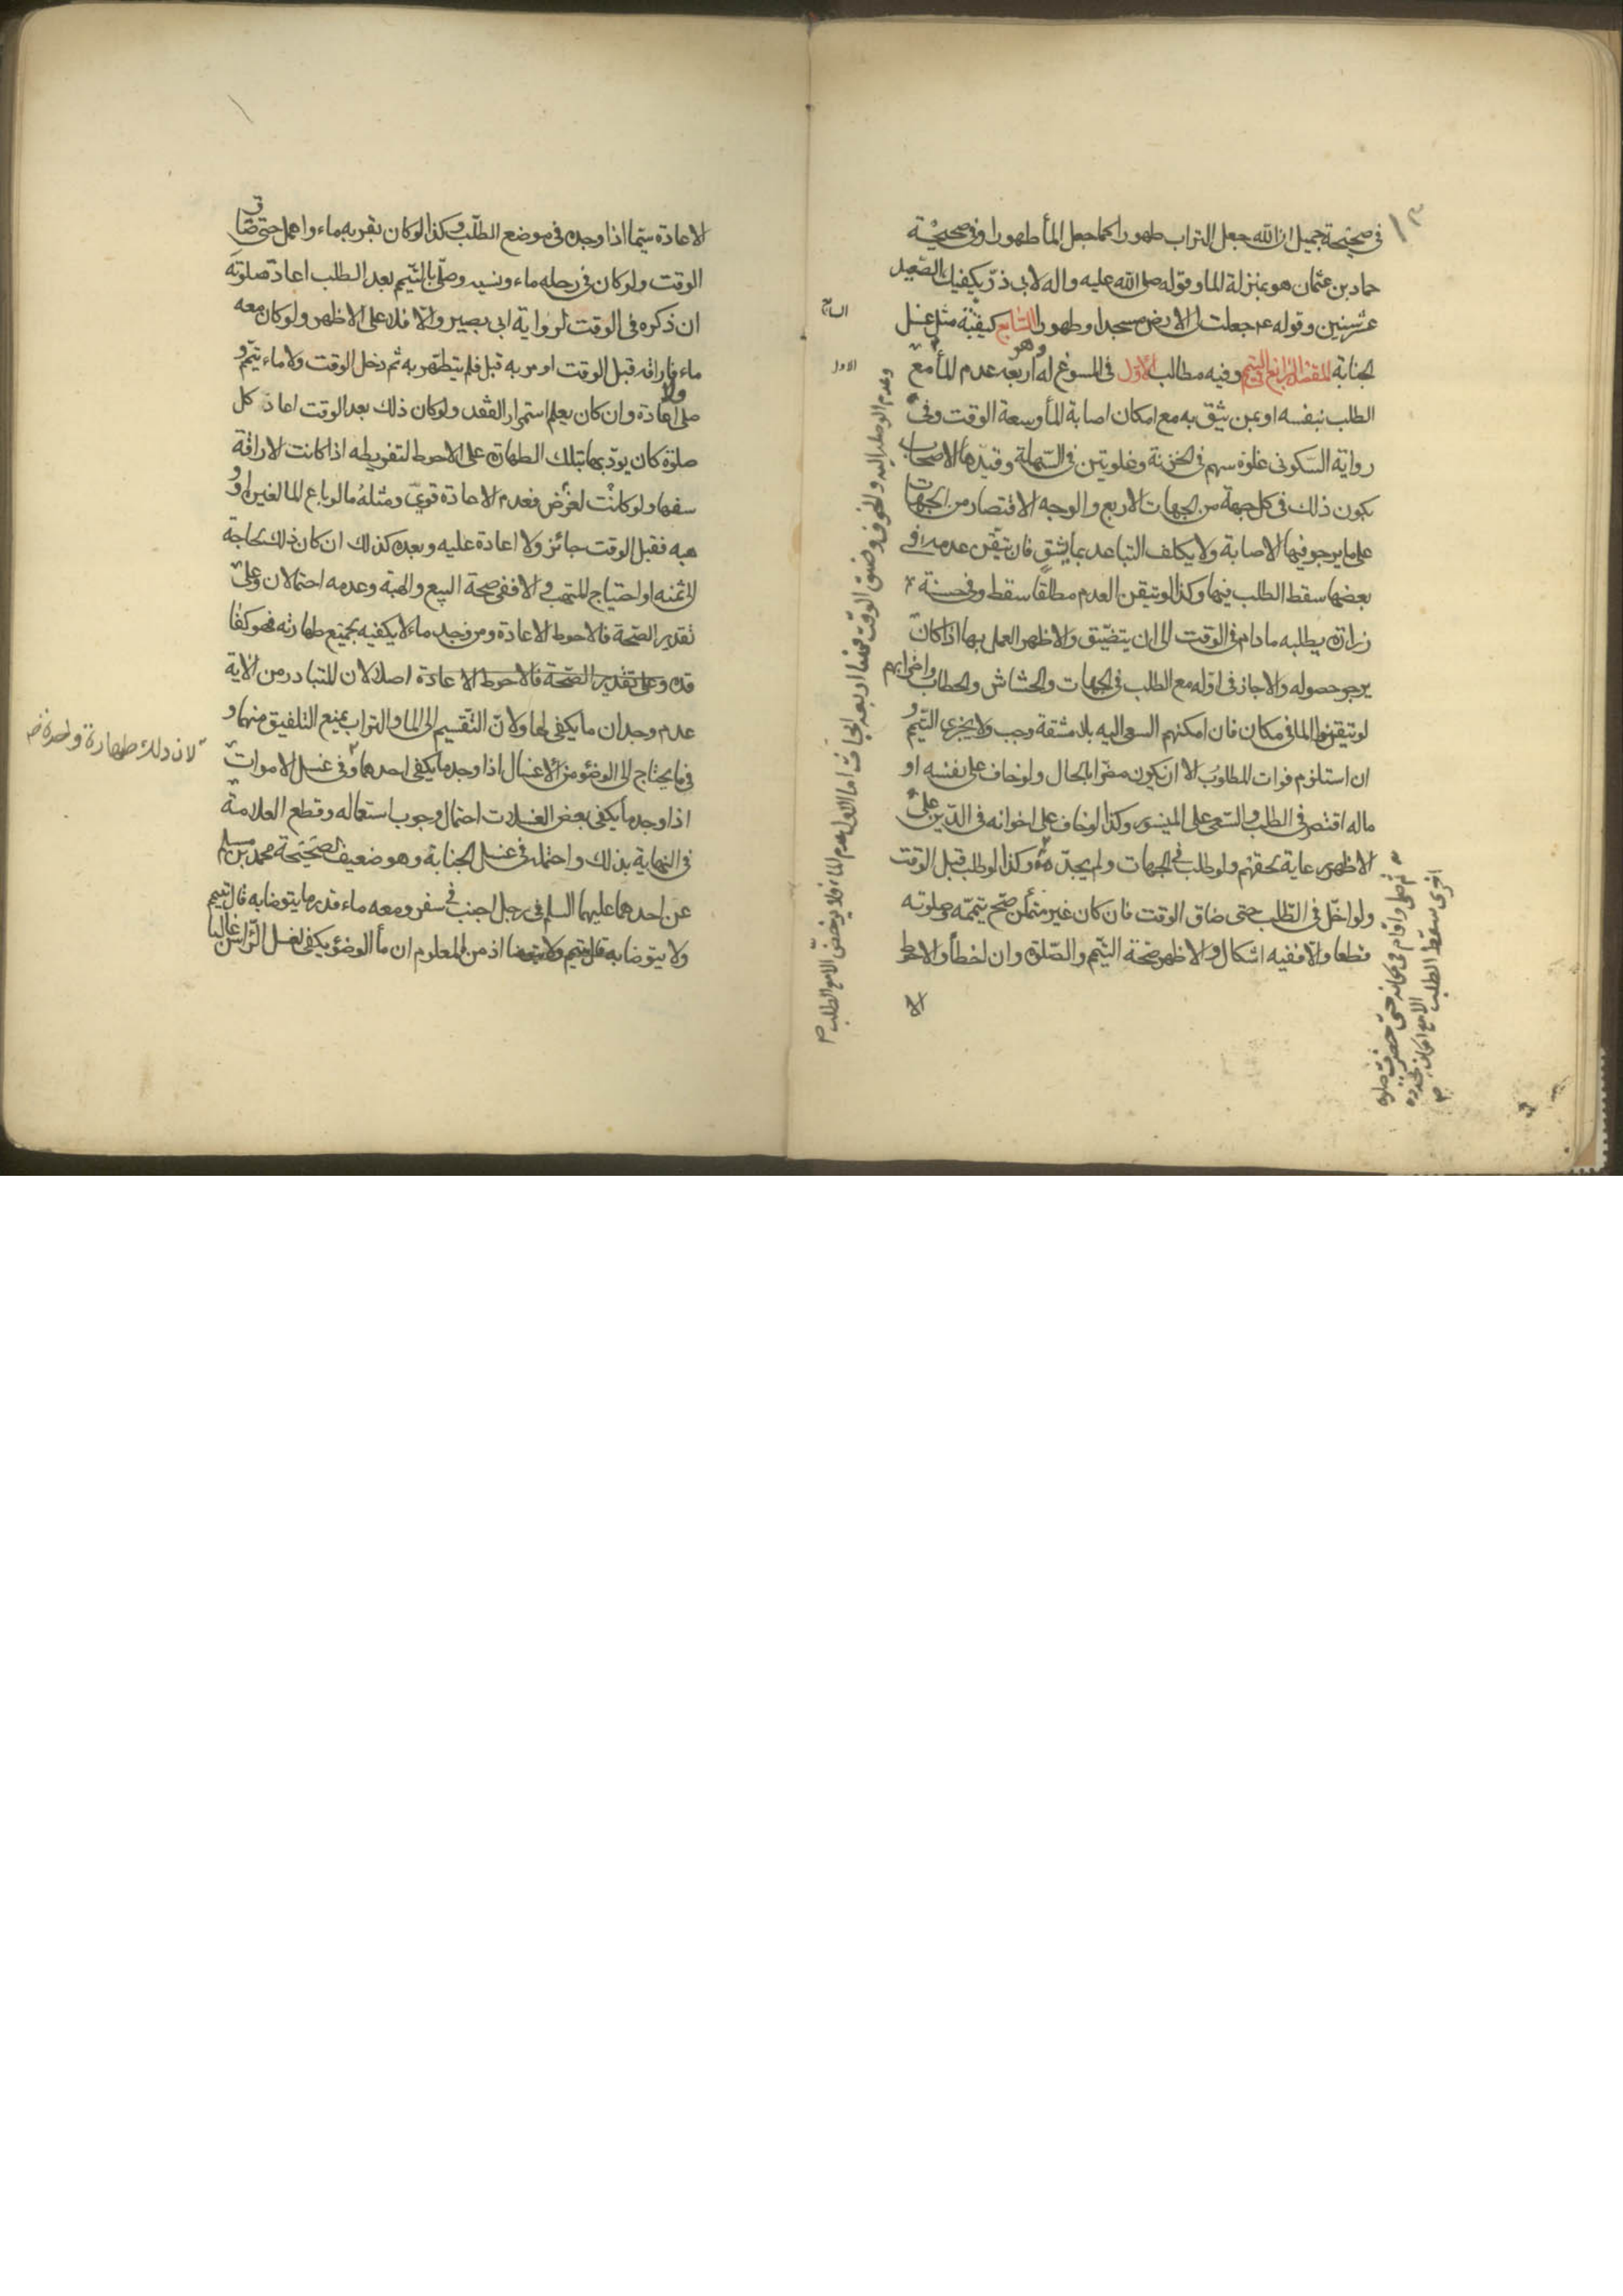 ١٣
في صحيحة جميل ان الله جعل التراب طهورا كما جعل الماء طهورا وفي صحيحة
حماد بن عثمان هو بمنزلة الماء وقوله صلى الله عليه واله لابي ذر يكفيك الصعيد
عشر سنين وقوله ع جعلت لي الارض مسجدا وطهورا السابع كيفيته مثل غسل
السابع
الجنابة المقصد الرابع في التيمم وفيه مطالب الاول في المسوغ له وهو اربعه عدم الماء مع
الاول
الطلب بنفسه او بمن يثق به مع امكان اصابة الماء وسعة الوقت وفي
رواية السكوني غلوة سهم في الحزنة وغلوتين في السهلة وقيدها الاصحاب
بكون ذلك في كل جهة من الجهات الاربع والوجه الاقتصار من الجهات
على ما يرجو فيها الاصابة ولا يكلف التباعد بما يشق فان تيقن عدمه في
بعضها سقط الطلب فيها وكذا لو تيقن العدم مطلقا سقط وفي حسنة
زرارة يطلبه ما دام في الوقت الى ان يتضيق والاظهر العمل بها اذا كان
يرجو حصوله والا جاز في اوله مع الطلب في الجهات والحشاش والحطاب واضرابهم
لو تيقنوا الماء في مكان فان امكنهم السعي اليه بلا مشقة وجب ولا يجزي التيمم و
ان استلزم فوات المطلوب الا ان يكون مضرا بالحال ولو خاف على نفسه او
ماله اقتصر في الطلب والسعي على الميسور وكذا لو خاف على اخوانه في الدين على
الاظهر رعاية لحقهم ولو طلب في الجهات ولم يجد وكذا لو طلب قبل الوقت
ولو اخل في الطلب حتى ضاق الوقت فان كان غير متمكن صح تيممه وصلوته
قطعا والا ففيه اشكال والاظهر صحة التيمم والصلوة وان اخطأ والاحوط
وعدم الوصلة اليه والخوف وضيق الوقت فهنا اربعة ابحاث اما الاول عدم الماء فلا يرخص الا مع الطلب
ثم صلى واقام في مكانه حتى حضرت صلوة
اخرى سقط الطلب الا مع امكان تجدده
الاعادة سيما اذا وجده في موضع الطلب وكذا لو كان بقربه ماء واهمل حتى ضاق
الوقت ولو كان في رحله ماء ونسيه وصلى بالتيمم بعد الطلب اعاد صلوته
ان ذكره في الوقت لرواية ابي بصير والا فلا على الاظهر ولو كان معه
ماء فاراقه قبل الوقت او مر به قبل فلم يتطهر به ثم دخل الوقت ولا ماء تيمم و
صلى ولا اعادة وان كان يعلم استمرار الفقد ولو كان ذلك بعد الوقت اعاد كل
صلوة كان يؤديها بتلك الطهارة على الاحوط لتفريطه اذا كانت الاراقة
سفها ولو كانت لغرض فعدم الاعادة قوي ومثله ما لو باع الماء لغيره او
وهبه فقبل الوقت جائز ولا اعادة عليه وبعده كذلك ان كان ذلك لحاجة
الى ثمنه او احتياج المتهب والا ففي صحة البيع والهبة وعدمه احتمالان وعلى
تقدير الصحة فالاحوط الاعادة ومن وجد ماء لا يكفيه بجميع طهارته فهو كفا
قده وعلى تقدير الصحة فالاحوط الاعادة اصلا لان المتبادر من الاية
عدم وجدان ما يكفي لها ولان التقسيم الى الماء والتراب يمنع التلفيق منهما و
لان ذلك طهارة واحدة
فيما يحتاج الى الوضوء من الاغسال اذا وجد ما يكفي احدهما وفي غسل الاموات
اذا وجد ما يكفي بعض الغسلات احتمال وجوب استعماله وقطع العلامة
في النهاية بذلك واحتمله في غسل الجنابة وهو ضعيف لصحيحة محمد بن مسلم
عن احدهما عليهما السلم في رجل اجنب في سفر ومعه ماء قدر ما يتوضا به قال يتيمم
ولا يتوضا به قال يتيمم ولا يتوضا اذ من المعلوم ان ماء الوضوء يكفي لغسل الراس غالبا